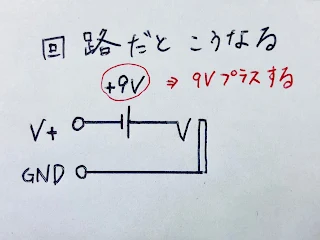 回路だとこうなる
+9V ⇒ 9Vプラスする
V+
GND